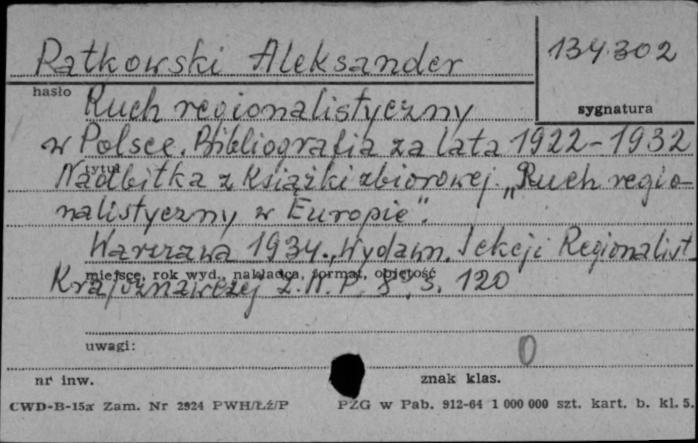 Patkowski Aleksander
134.302
hasło
sygnatura
Ruch regionalistyczny
w Polsce. Bibliografia za lata 1922-1932
tytuł
Nadbitka z Książki zbiorowej. „Ruch regio-
nalistyczny w Europie".
Warszawa 1934., Wydawn. Sekcji Regionalist.
miejsce, rok wyd., nakładca, format, objętość
Krajoznawczej Z.N.P. 8°, s. 120
uwagi:
0
nr inw.
znak klas.
CWD-B-15a Zam. Nr 2924 PWH/Łź/P
PZG w Pab. 912-64 1 000 000 szt. kart. b. kl. 5.